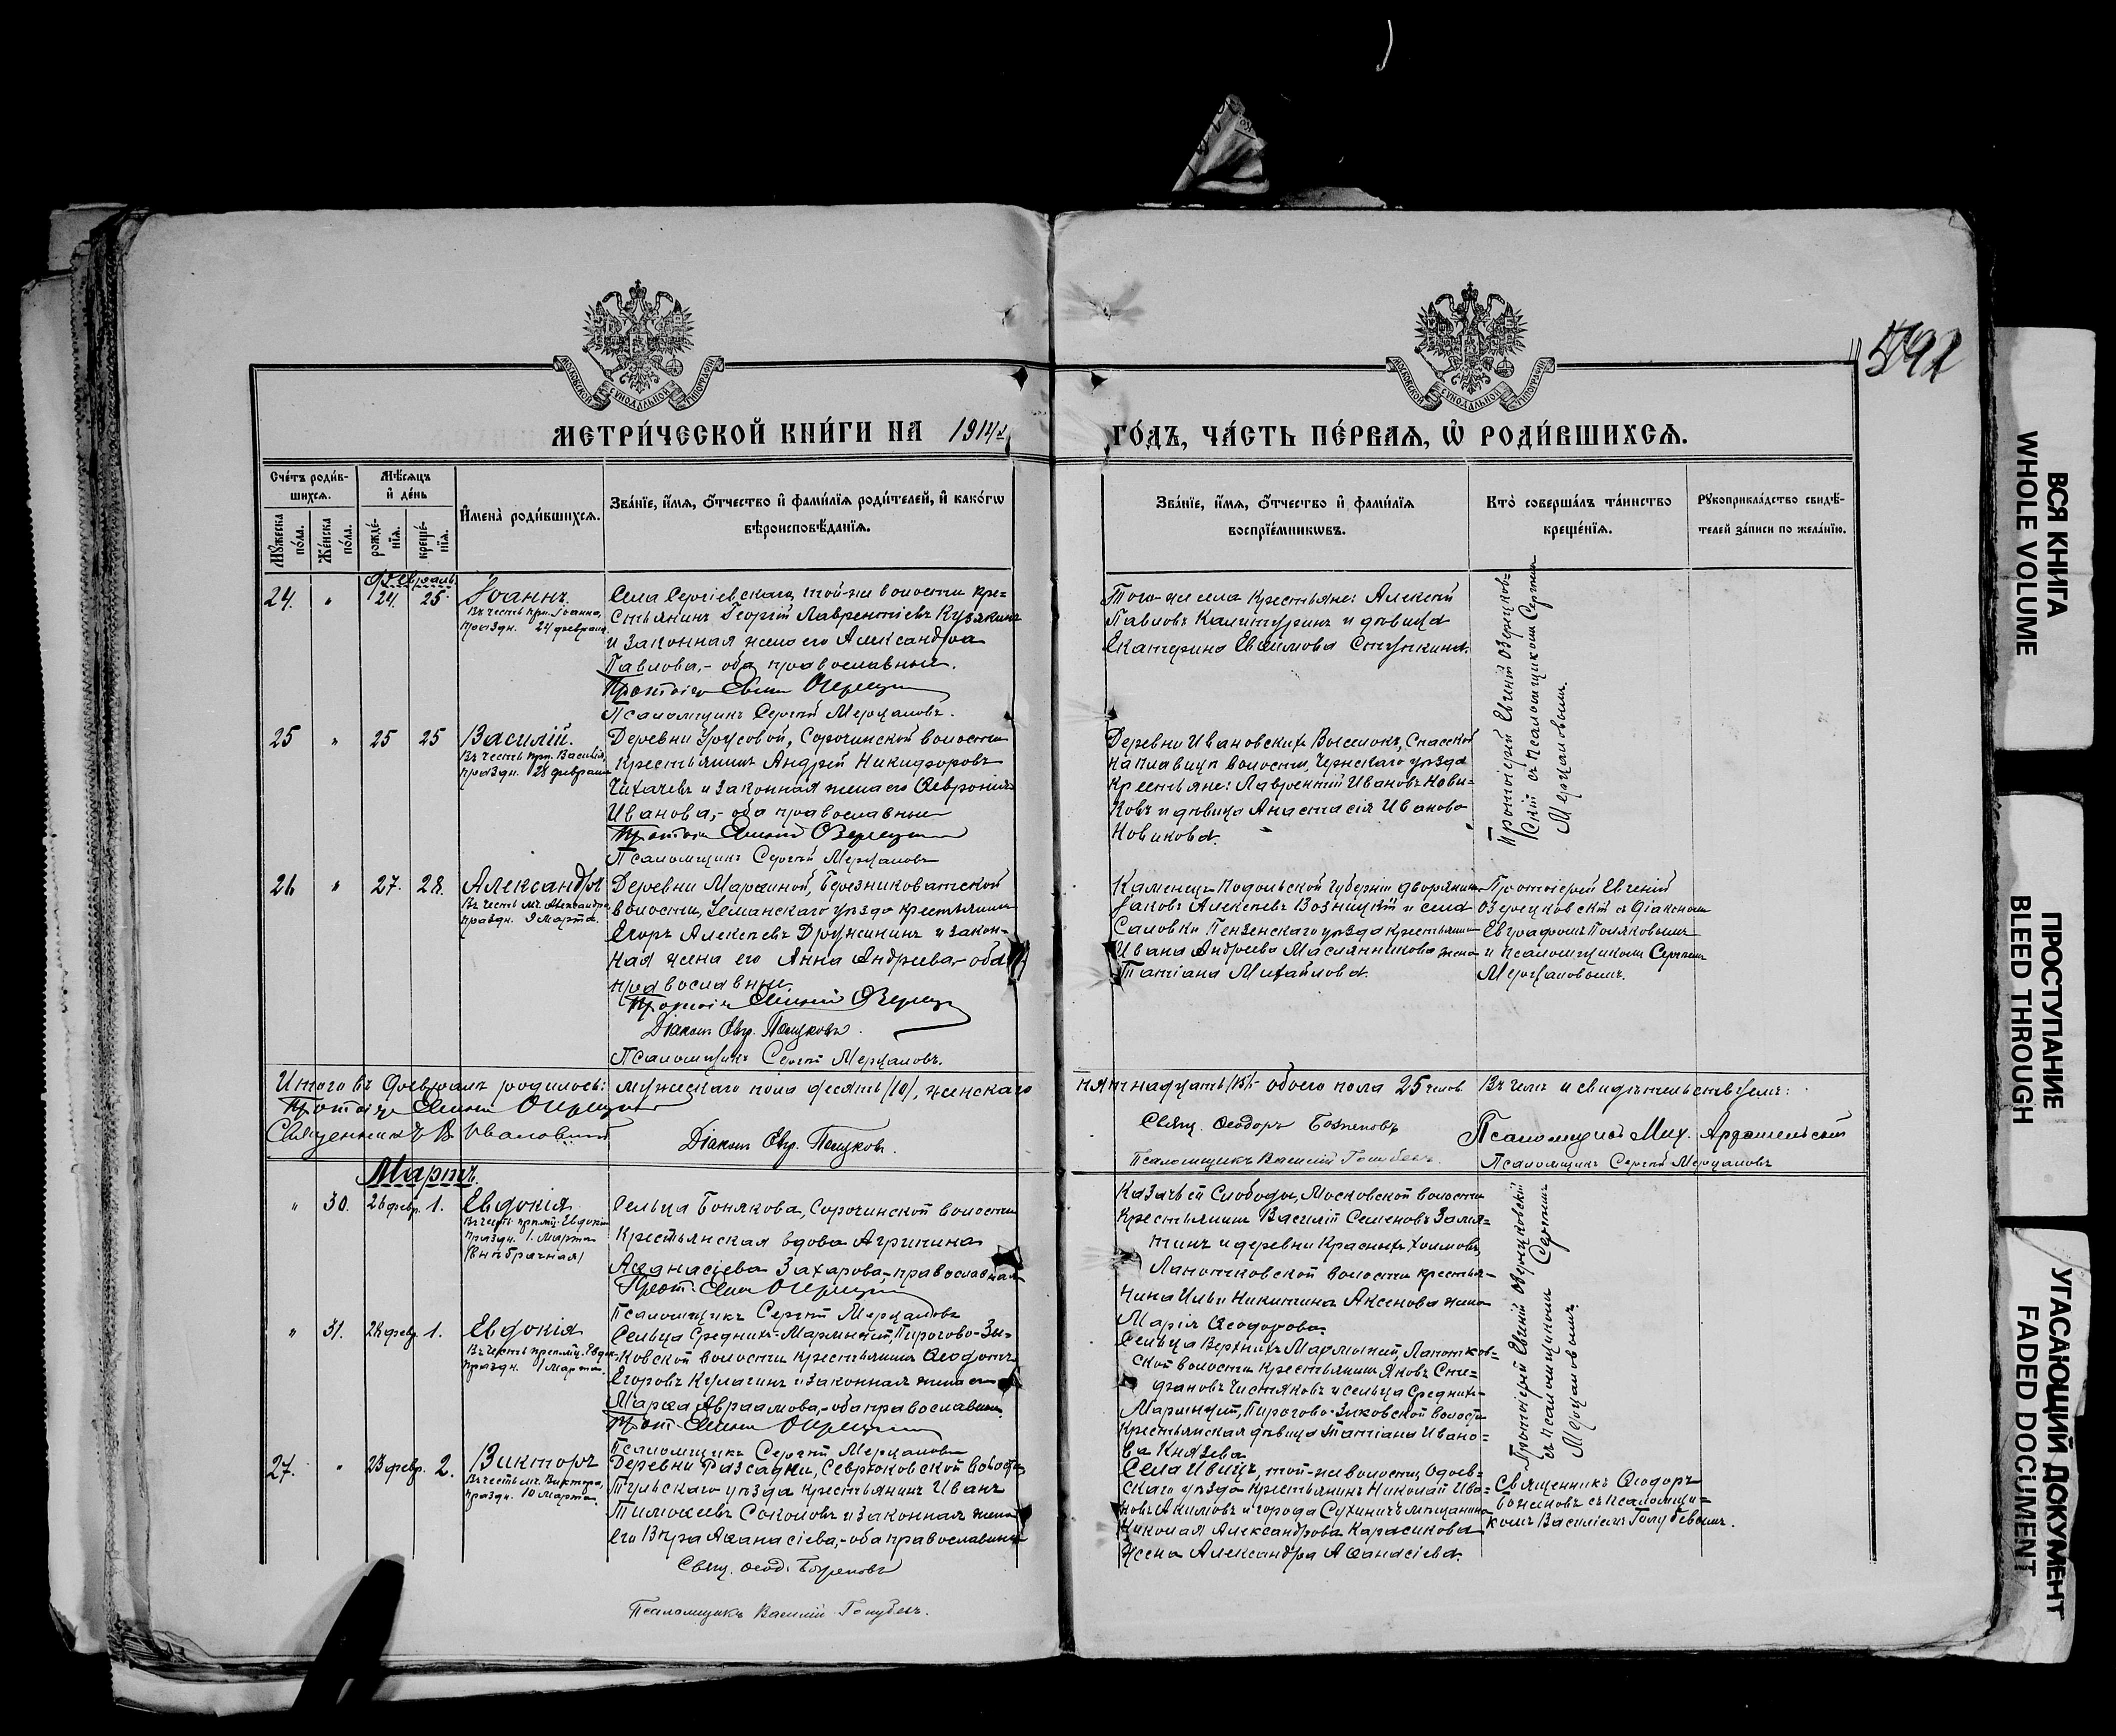 592
МОСКОВСКОЙ СѴНОДАЛЬНОЙ ТИПОГРАФІИ
МОСКОВСКОЙ СѴНОДАЛЬНОЙ ТИПОГРАФІИ
МЕТРИ́ЧЕСКОЙ КНИ́ГИ НА 1914
ГО́ДЪ, ЧА́СТЬ ПЕ́РВАѦ, Ѡ҆ РОДИ́ВШИХСѦ.
Сче́тъ роди́в-
шихсѧ.
Мѣ́сѧцъ
и҆ де́нь
Мꙋ́жеска
по́ла.
Же́нска
по́ла.
рожде́-
нїѧ.
креще́-
нїѧ.
И҆мена̀ роди́вшихсѧ.
Зва́нїе, и҆́мѧ, ѻ҆́тчество и҆ фами́лїѧ роди́телей, и҆ како́гѡ
вѣроисповѣ́данїѧ.
Зва́нїе, и҆́мѧ, ѻ҆́тчество и҆ фами́лїѧ
воспрїе́мникѡвъ.
Кто̀ соверша́лъ та́инство
креще́нїѧ.
Рꙋкоприкла́дство свидѣ́-
телей за́писи по жела́нїю.
Февраль
24. " 24. 25. Іоаннъ.
Въ честь прп. Іоанна,
праздн. 24 февраля.
Села Сергіевскаго, той-же волости кре-
стьянинъ Георгій Лаврентіевъ Кузякинъ
и законная жена его Александра
Павлова,- оба православные.
Псаломщикъ Сергій Мерцаловъ.
Того-же села крестьяне: Алексій
Павловъ Калитуринъ и дѣвица
Екатерина Евѳимова Ступкина.
Протоіерей Евгеній Озерецков-
скій съ псаломщикомъ Сергіемъ
Мерцаловымъ.
25 " 25 25 Василій.
Въ честь прп. Василія,
праздн. 28 февраля
Деревни Урусовой, Сорочинской волости
крестьянинъ Андрей Никифоровъ
Чихачевъ и законная жена его Ѳевронія
Иванова,- оба православные
Псаломщикъ Сергій Мерцаловъ
Деревни Ивановскихъ Выселокъ, Спасской
волости, Чернскаго уѣзда
крестьяне: Лаврентій Ивановъ Нови-
ковъ и дѣвица Анастасія Иванова
Новикова.
26 " 27. 28. Александръ
Въ честь мч. Александра,
праздн. 9 Марта.
Деревни Марѳиной, Березниковатской
волости, Усманскаго уѣзда крестьянинъ
Егоръ Алексѣевъ Дружининъ и закон-
ная жена его Анна Андреева,- оба
православные.
Псаломщикъ Сергій Мерцаловъ.
Каменецъ-Подольской губерніи дворянинъ
Іаковъ Алексѣевъ Возницкій и села
Саловки Пензенскаго уѣзда крестьянина
Ивана Андреева Маслянникова жена
Татіана Михайлова.
Протоіерей Евгеній
Озерецковскій съ діакономъ
Евграфомъ Поляковымъ
и псаломщикомъ Сергіемъ
Мерцаловымъ.
Итого въ Февралѣ родилось: мужескаго пола десять /10/, женскаго
пятнадцать /15/- обоего пола 25 челов. Въ чемъ и свидѣтельствуемъ:
Священникъ В. Ивановскій
Свящ. Ѳеодоръ
Псаломщикъ Мих.
Псаломщикъ Василій Голубевъ.
Псаломщикъ Сергій Мерцаловъ
Мартъ.
" 30. 26 февр. 1. Евдокія
Въ честь прп. мц. Евдокіи
праздн. 1. Марта
(внѣбрачная)
Сельца Бонякова, Сорочинской волости
крестьянская вдова Агрипина
Аѳанасіева Захарова,- православная
Псаломщикъ Сергій Мерцаловъ
Казачьей Слободы, Московской волости
крестьянинъ Василій Семеновъ Замя-
тинъ и деревни Красныхъ Холмовъ,
Лапотковской волости крестья-
нина Ильи Никитина Аксенова жена
Марія Ѳеодорова.
Протоіерей Евгеній Озерецковскій
съ псаломщикомъ Сергіемъ
Мерцаловымъ.
" 31. 28 февр. 1. Евдокія
Въ честь преп. мц. Евдок.
праздн. 1 Марта.
Сельца Среднихъ-Марьиной, Пирогово-Зы-
ковской волости крестьянинъ Ѳеодотъ
Егоровъ Кулагинъ и законная жена его
Марѳа Авраамова,- оба православные.
Псаломщикъ Сергій Мерцаловъ
ской волости крестьянинъ Яковъ Сте-
фановъ Чистяковъ и сельца Среднихъ-
крестьянская дѣвица Татіана Ивано-
ва Князева.
27. " 23 февр. 2. Викторъ
Въ честь мч. Виктора,
праздн. 10 Марта.
Деревни Разсадки, Севрюковской волости,
Тульскаго уѣзда крестьянинъ Иванъ
Тимоѳеевъ Соколовъ и законная жена
его Вѣра Аѳанасіева,- оба православные
Псаломщикъ Василій Голубевъ.
Села Ивицъ, той-же волости, Одоев-
скаго уѣзда крестьянинъ Николай Ива-
новъ Акимовъ и города Сухиничъ мѣщанина
Николая Александрова Карасикова
жена Александра Аѳанасіева.
Священникъ Ѳеодоръ
съ псаломщи-
комъ Василіемъ Голубевымъ.
ВСЯ КНИГА
WHOLE VOLUME
ПРОСТУПАНИЕ
BLEED THROUGH
УГАСАЮЩИЙ ДОКУМЕНТ
FADED DOCUMENT